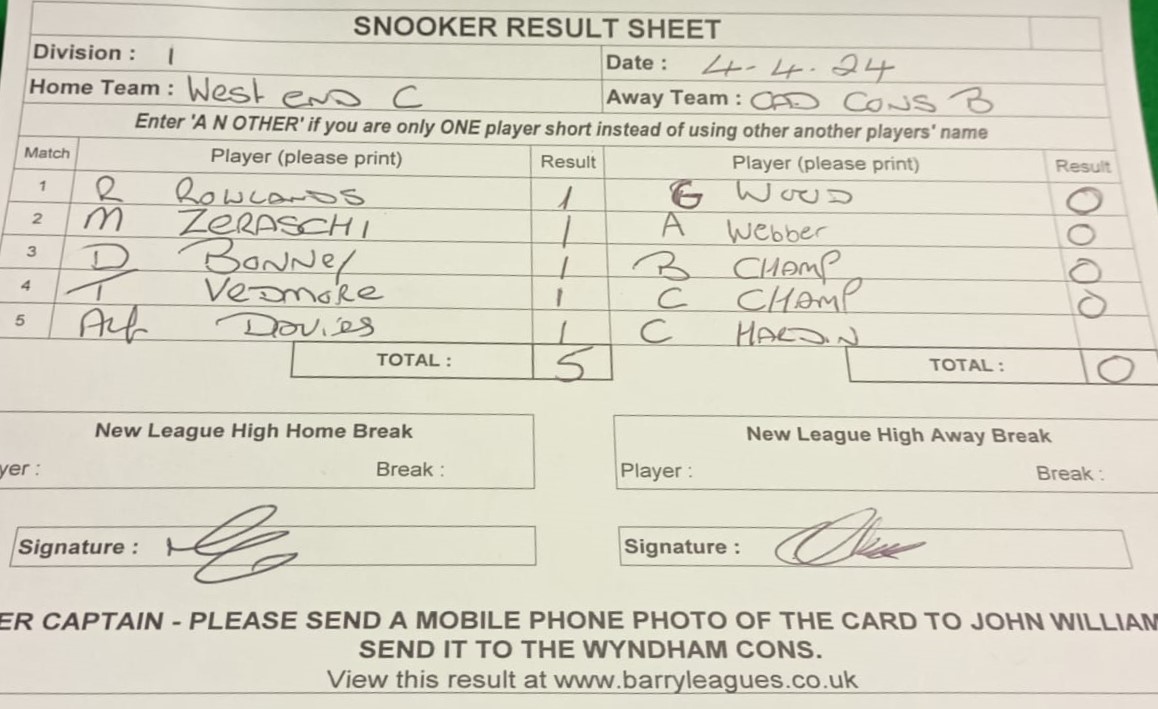 SNOOKER RESULT SHEET
Division : 1 Date : 4-4.24
Home Team : West END C Away Team : CAD CONS B
Enter 'A N OTHER' if you are only ONE player short instead of using other another players' name
Match Player (please print) Result Player (please print) Result
1 R ROWLANDS 1 G WOOD 0
2 M ZERASCHI 1 A Webber 0
3 D BONNEY 1 B CHAMP 0
4 T VEDMORE 1 C CHAMP 0
5 Alf Davies 1 C HARDIN
TOTAL : 5 TOTAL : 0
New League High Home Break New League High Away Break
yer : Break : Player : Break :
Signature : Signature :
ER CAPTAIN - PLEASE SEND A MOBILE PHONE PHOTO OF THE CARD TO JOHN WILLIAM
SEND IT TO THE WYNDHAM CONS.
View this result at www.barryleagues.co.uk